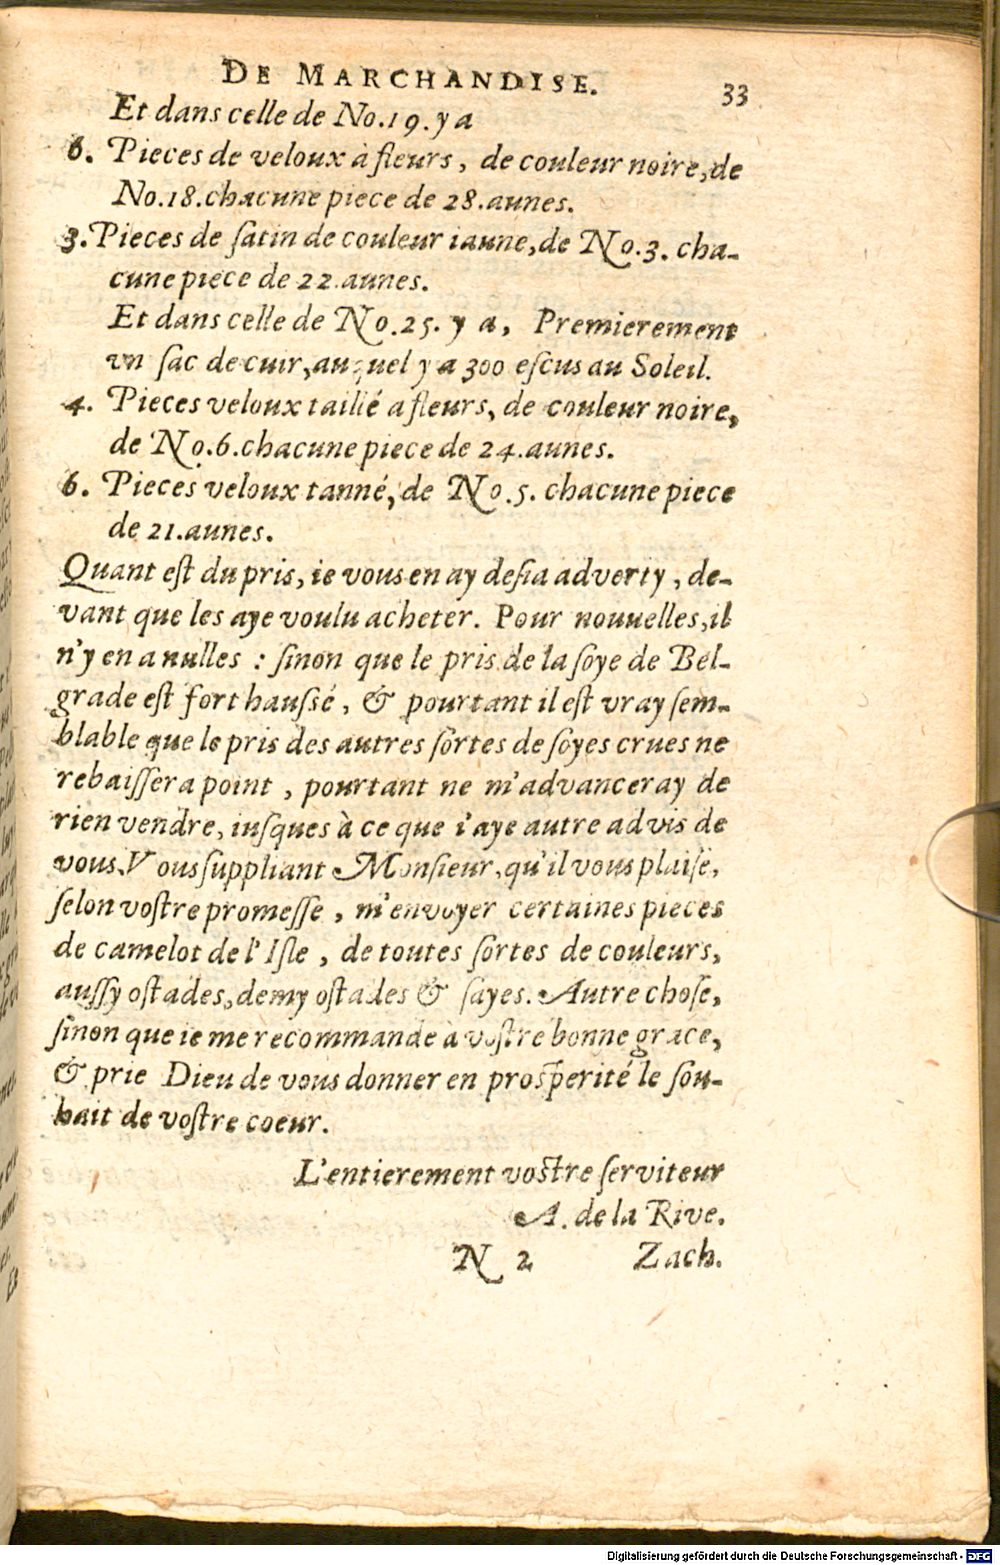 DE MARCHANDISE. 33
Et dans celle de No.19.y a
6. Pieces de veloux à fleurs, de couleur noire, de
No.18.chacune piece de 28.aunes.
3.Pieces de ſatin de couleur iaune, de No.3. cha-
cune piece de 22.aunes.
Et dans celle de No.25. y a, Premierement
vn ſac de cuir, auquel y a 300 eſcus au Soleil.
4. Pieces veloux taillé a fleurs, de couleur noire,
de No.6.chacune piece de 24.aunes.
6. Pieces veloux tanné, de No.5. chacune piece
de 21.aunes.
Quant eſt du pris, ie vous en ay deſia adverty, de-
vant que les aye voulu acheter. Pour nouuelles, il
n'y en a nulles : ſinon que le pris de la ſoye de Bel-
grade eſt fort hauſsé, & pourtant il eſt vray ſem-
blable que le pris des autres ſortes de ſoyes crues ne
rebaiſſera point, pourtant ne m'advanceray de
rien vendre, iuſques à ce que i'aye autre advis de
vous. Vous ſuppliant Monſieur, qu'il vous plaiſe,
ſelon voſtre promeſſe, m'envoyer certaines pieces
de camelot de l'Iſle, de toutes ſortes de couleurs,
auſſy oſtades, demy oſtades & ſayes. Autre choſe,
ſinon que ie me recommande à voſtre bonne grace,
& prie Dieu de vous donner en proſperité le ſou-
hait de voſtre coeur.
L'entierement voſtre ſerviteur
A. de la Rive.
N 2 Zach.
Digitalisierung gefördert durch die Deutsche Forschungsgemeinschaft - DFG